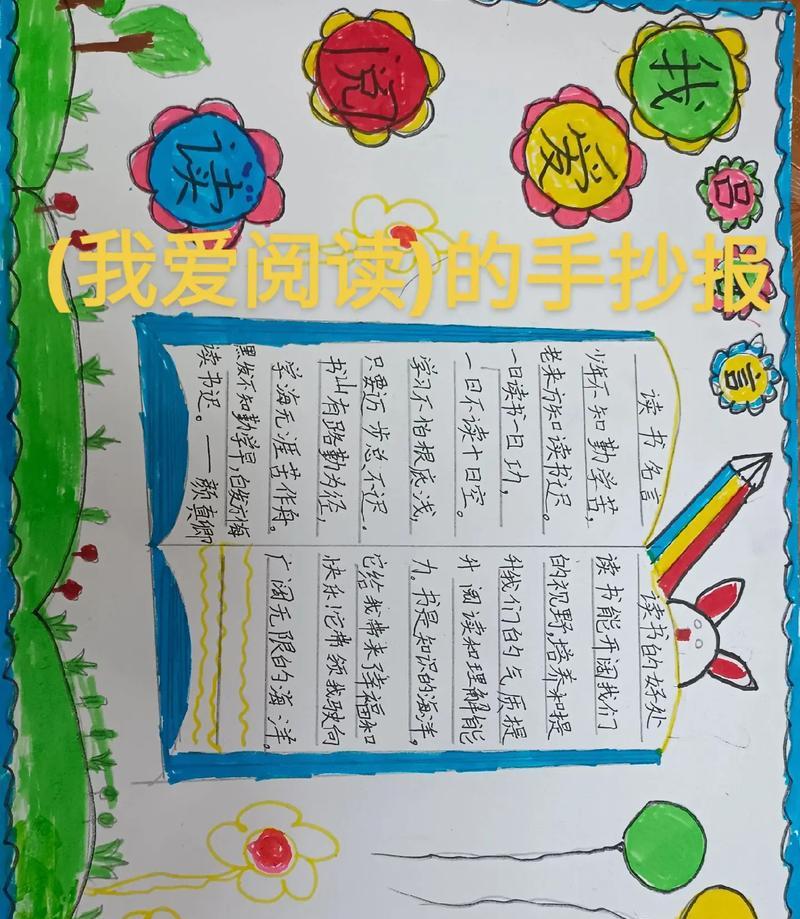 (我爱阅读)的手抄报
我爱阅读
吕
言
读书名言
少年不知勤学苦,
老来方知读书迟。
一日读书一日功,
一日不读十日空。
学习不怕根底浅,
只要迈步总不迟。
书山有路勤为径,
学海无涯苦作舟。
黑发不知勤学早,白发方悔
读书迟。——颜真卿
读书的好处
读书能开阔我们
的视野,培养和提
升我们的气质提
升阅读和理解能
力。书是知识的海洋,
它给我带来幸福和
快乐!它带领我驶向
广阔无限的海洋。